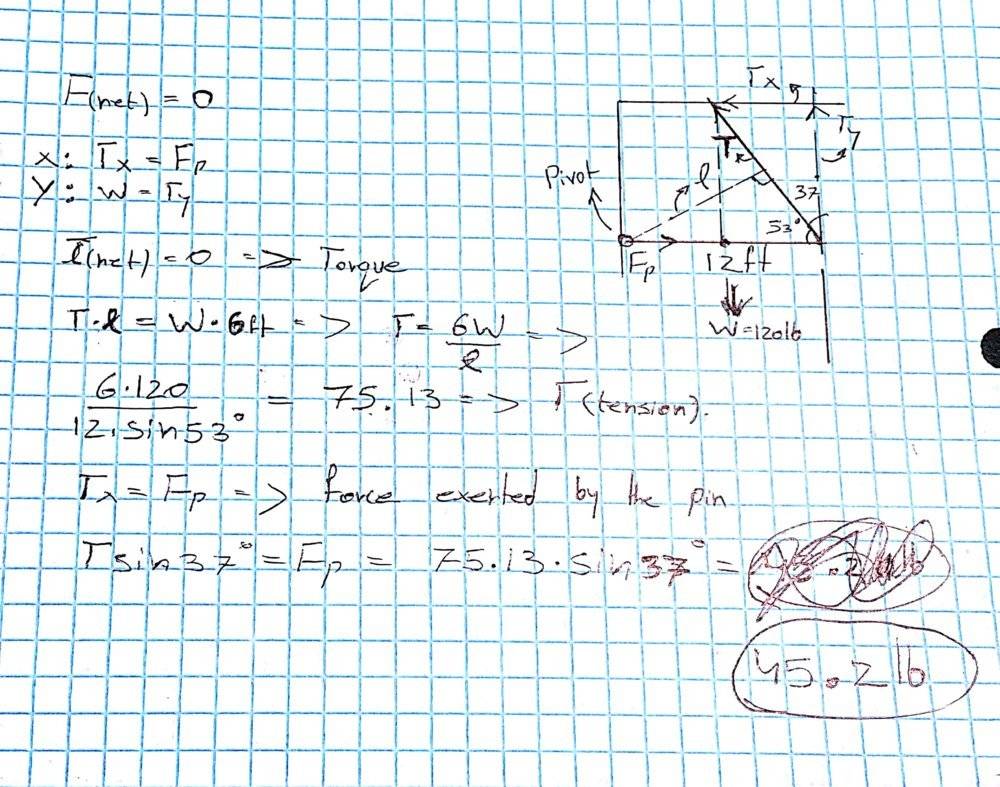 F(net) = 0
x: Tx = Fp
Y: W = Ty
τ(net) = 0 => Torque
T·l = W·6ft => T = 6W/l =>
6·120/12·sin53° = 75.13 => T(tension).
Tx = Fp => force exerted by the pin
Tsin37° = Fp = 75.13·sin37° =
45.2 lb
Tx
Ty
T
l
37
53°
Pivot
Fp
12ft
W=120lb